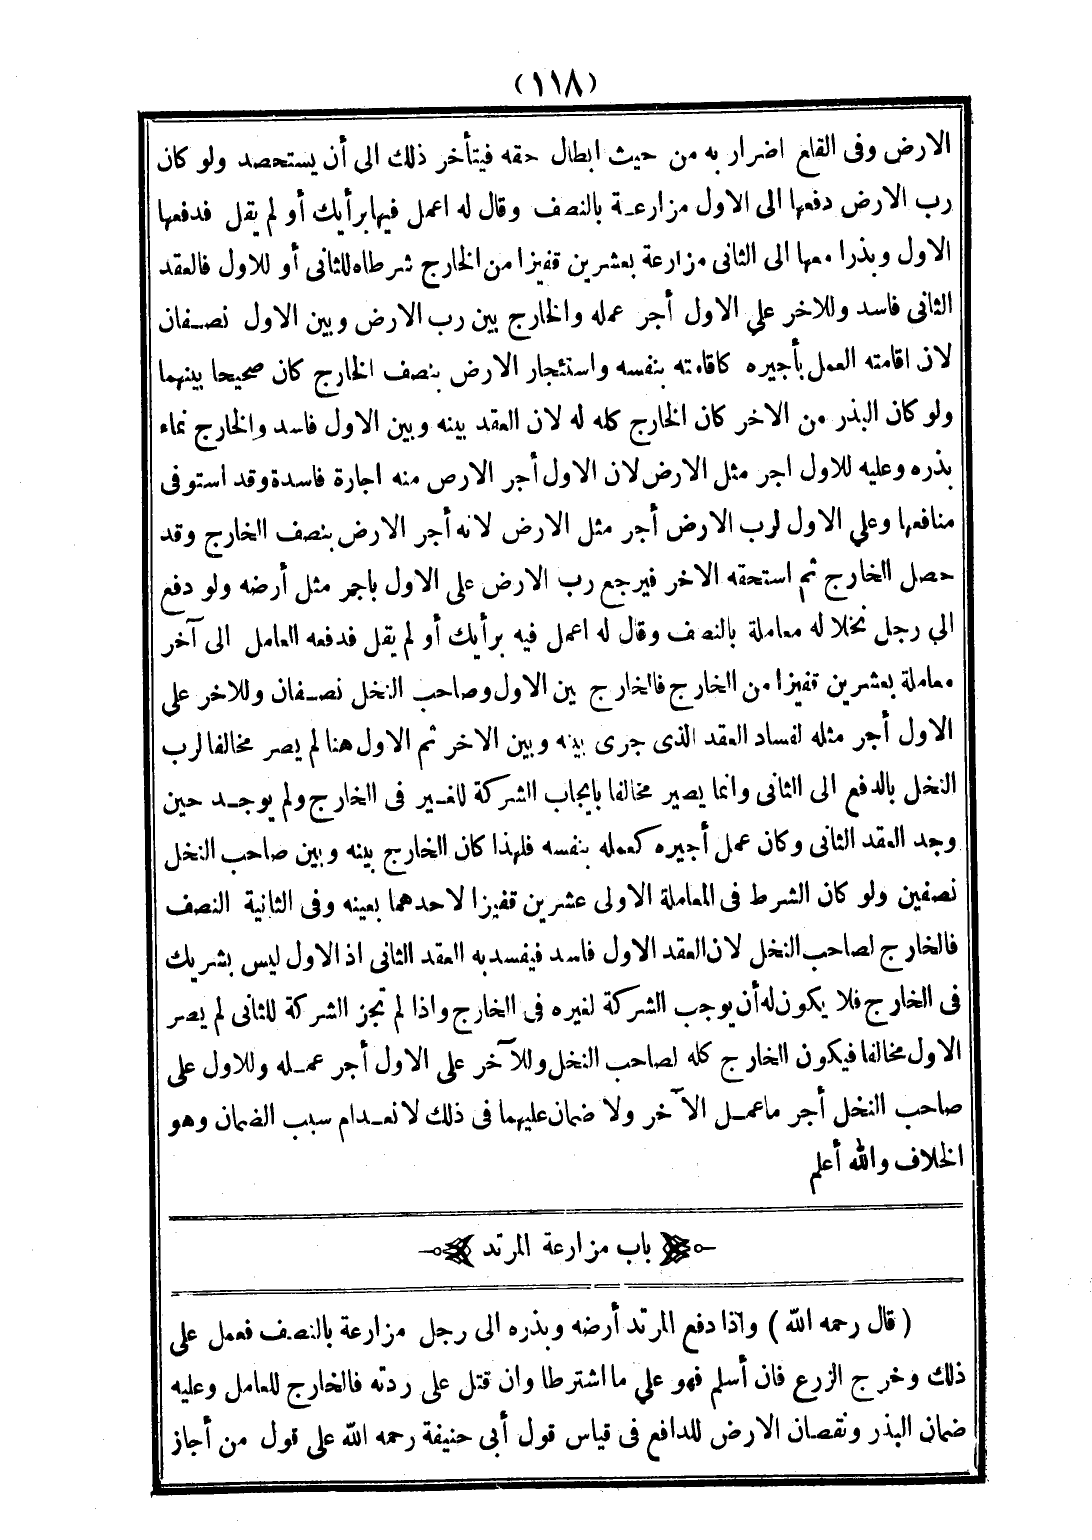 (١١٨)
الارض وفى القلع اضرار به من حيث ابطال حقه فيتأخر ذلك الى أن يستحصد ولو كان
رب الارض دفعها الى الاول مزارعة بالنصف وقال له اعمل فيها برأيك أو لم يقل فدفعها
الاول وبذرا معها الى الثانى مزارعة بعشرين قفيزا من الخارج شرطاه للثانى أو للاول فالعقد
الثانى فاسد وللاخر علي الاول أجر عمله والخارج بين رب الارض وبين الاول نصفان
لان اقامته العمل بأجيره كاقامته بنفسه واستئجار الارض بنصف الخارج كان صحيحا بينهما
ولو كان البذر من الاخر كان الخارج كله له لان العقد بينه وبين الاول فاسد والخارج نماء
بذره وعليه للاول اجر مثل الارض لان الاول أجر الارص منه اجارة فاسدة وقد استوفى
منافعها وعلي الاول لرب الارض أجر مثل الارض لانه أجر الارض بنصف الخارج وقد
حصل الخارج ثم استحقه الاخر فيرجع رب الارض على الاول باجر مثل أرضه ولو دفع
الي رجل نخلا له معاملة بالنصف وقال له اعمل فيه برأيك أو لم يقل فدفعه العامل الى آخر
معاملة بعشرين قفيزا من الخارج فالخارج بين الاول وصاحب النخل نصفان وللاخر علي
الاول أجر مثله لفساد العقد الذى جرى بينه وبين الاخر ثم الاول هنا لم يصر مخالفا لرب
النخل بالدفع الى الثانى وانما يصير مخالفا بايجاب الشركة للغير فى الخارج ولم يوجد حين
وجد العقد الثانى وكان عمل أجيره كعمله بنفسه فلهذا كان الخارج بينه وبين صاحب النخل
نصفين ولو كان الشرط فى المعاملة الاولى عشرين قفيزا لاحدهما بعينه وفى الثانية النصف
فالخارج لصاحب النخل لان العقد الاول فاسد فيفسد به العقد الثانى اذ الاول ليس بشريك
فى الخارج فلا يكون له أن يوجب الشركة لغيره فى الخارج واذا لم تجز الشركة للثانى لم يصر
الاول مخالفا فيكون الخارج كله لصاحب النخل وللآخر على الاول أجر عمله وللاول على
صاحب النخل أجر ما عمل الآخر ولا ضمان عليهما فى ذلك لانعدام سبب الضمان وهو
الخلاف والله أعلم
باب مزارعة المرتد
( قال رحمه الله ) واذا دفع المرتد أرضه وبذره الى رجل مزارعة بالنصف فعمل على
ذلك وخرج الزرع فان أسلم فهو علي ما اشترطا وان قتل على ردته فالخارج للعامل وعليه
ضمان البذر ونقصان الارض للدافع فى قياس قول أبى حنيفة رحمه الله على قول من أجاز